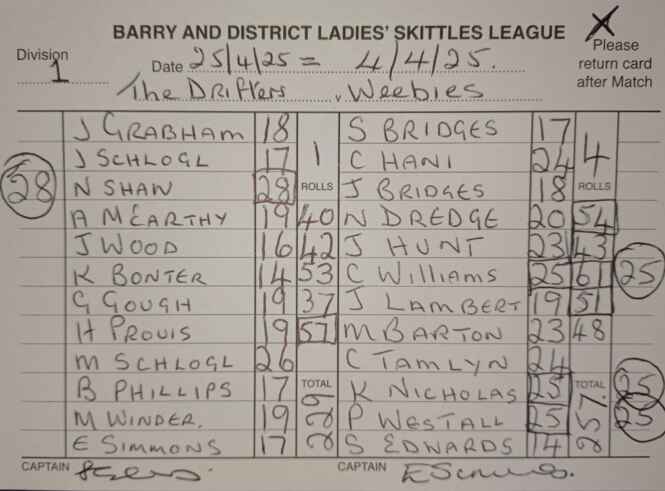 BARRY AND DISTRICT LADIES' SKITTLES LEAGUE
X Please return card after Match
Division 1
Date 25/4/25 = 4/4/25.
The Drifters v Weebies
J GRABHAM 18 1 S BRIDGES 17 4
J SCHLOGL 17 C HANI 24
28 N SHAW 28 ROLLS J BRIDGES 18 ROLLS
A McEARTHY 19 40 N DREDGE 20 54
J WOOD 16 42 J HUNT 23 43
K BONTER 14 53 C WILLIAMS 25 61 25
G GOUGH 19 37 J LAMBERT 19 51
H PROUIS 19 57 M BARTON 23 48
M SCHLOGL 26 C TAMLYN 24
B PHILLIPS 17 TOTAL 229 K NICHOLAS 25 TOTAL 257. 25
M WINDER. 19 P WESTALL 25 25
E SIMMONS 17 S EDWARDS 14
CAPTAIN CAPTAIN